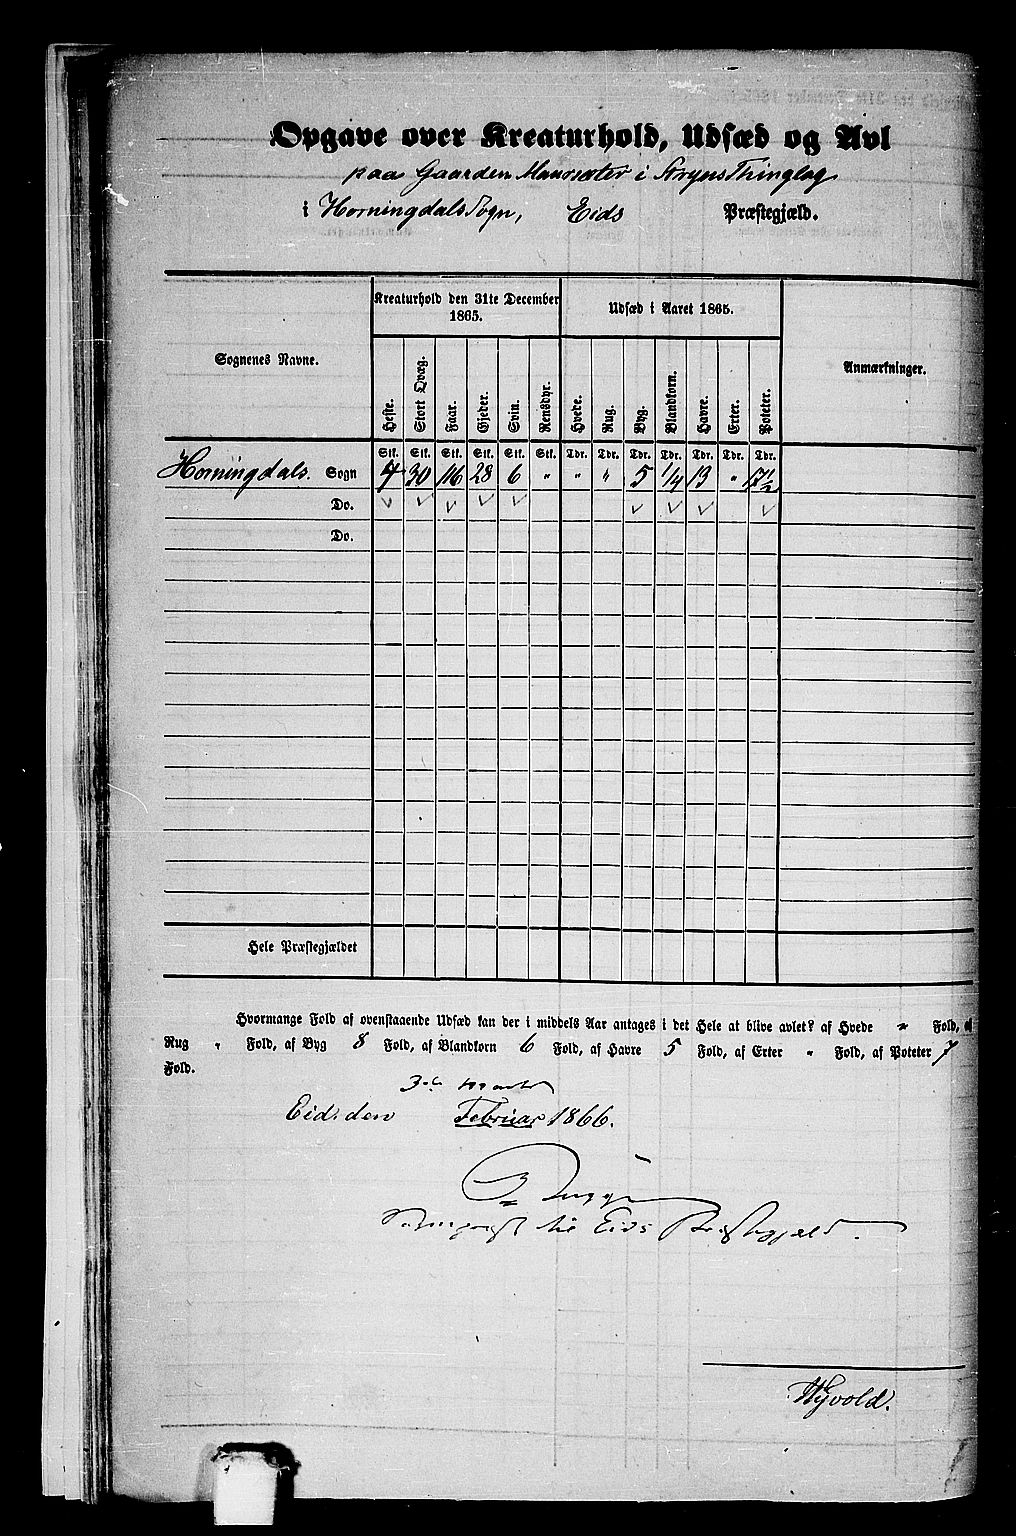 Opgave over Kreaturhold, Udsæd og Avl
paa Gaarden Maursæter i Stryns Thinglag
i Horningdals Sogn, Eids Præstegjæld.
Kreaturhold den 31te December 1865.
Udsæd i Aaret 1865.
Sognenes Navne.
Heste. Stort Qvæg. Faar. Gjeder. Svin. Rensdyr. Hvede. Rug. Byg. Blandkorn. Havre. Erter. Poteter.
Anmærkninger.
Stk. Stk. Stk. Stk. Stk. Stk. Tdr. Tdr. Tdr. Tdr. Tdr. Tdr. Tdr.
Horningdals. Sogn 4 30 116 28 6 " " " 5 1/4 13 " 17½
Do. ✓ ✓ ✓ ✓ ✓ ✓ ✓ ✓ ✓
Do.
Hele Præstegjældet
Hvormange Fold af ovenstaaende Udsæd kan der i middels Aar antages i det Hele at blive avlet? af Hvede " Fold, af
Rug " Fold, af Byg 8 Fold, af Blandkorn 6 Fold, af Havre 5 Fold, af Erter " Fold, af Poteter 7
Fold.
Eid. den Februar 1866.
til Eids Præstegjæld.